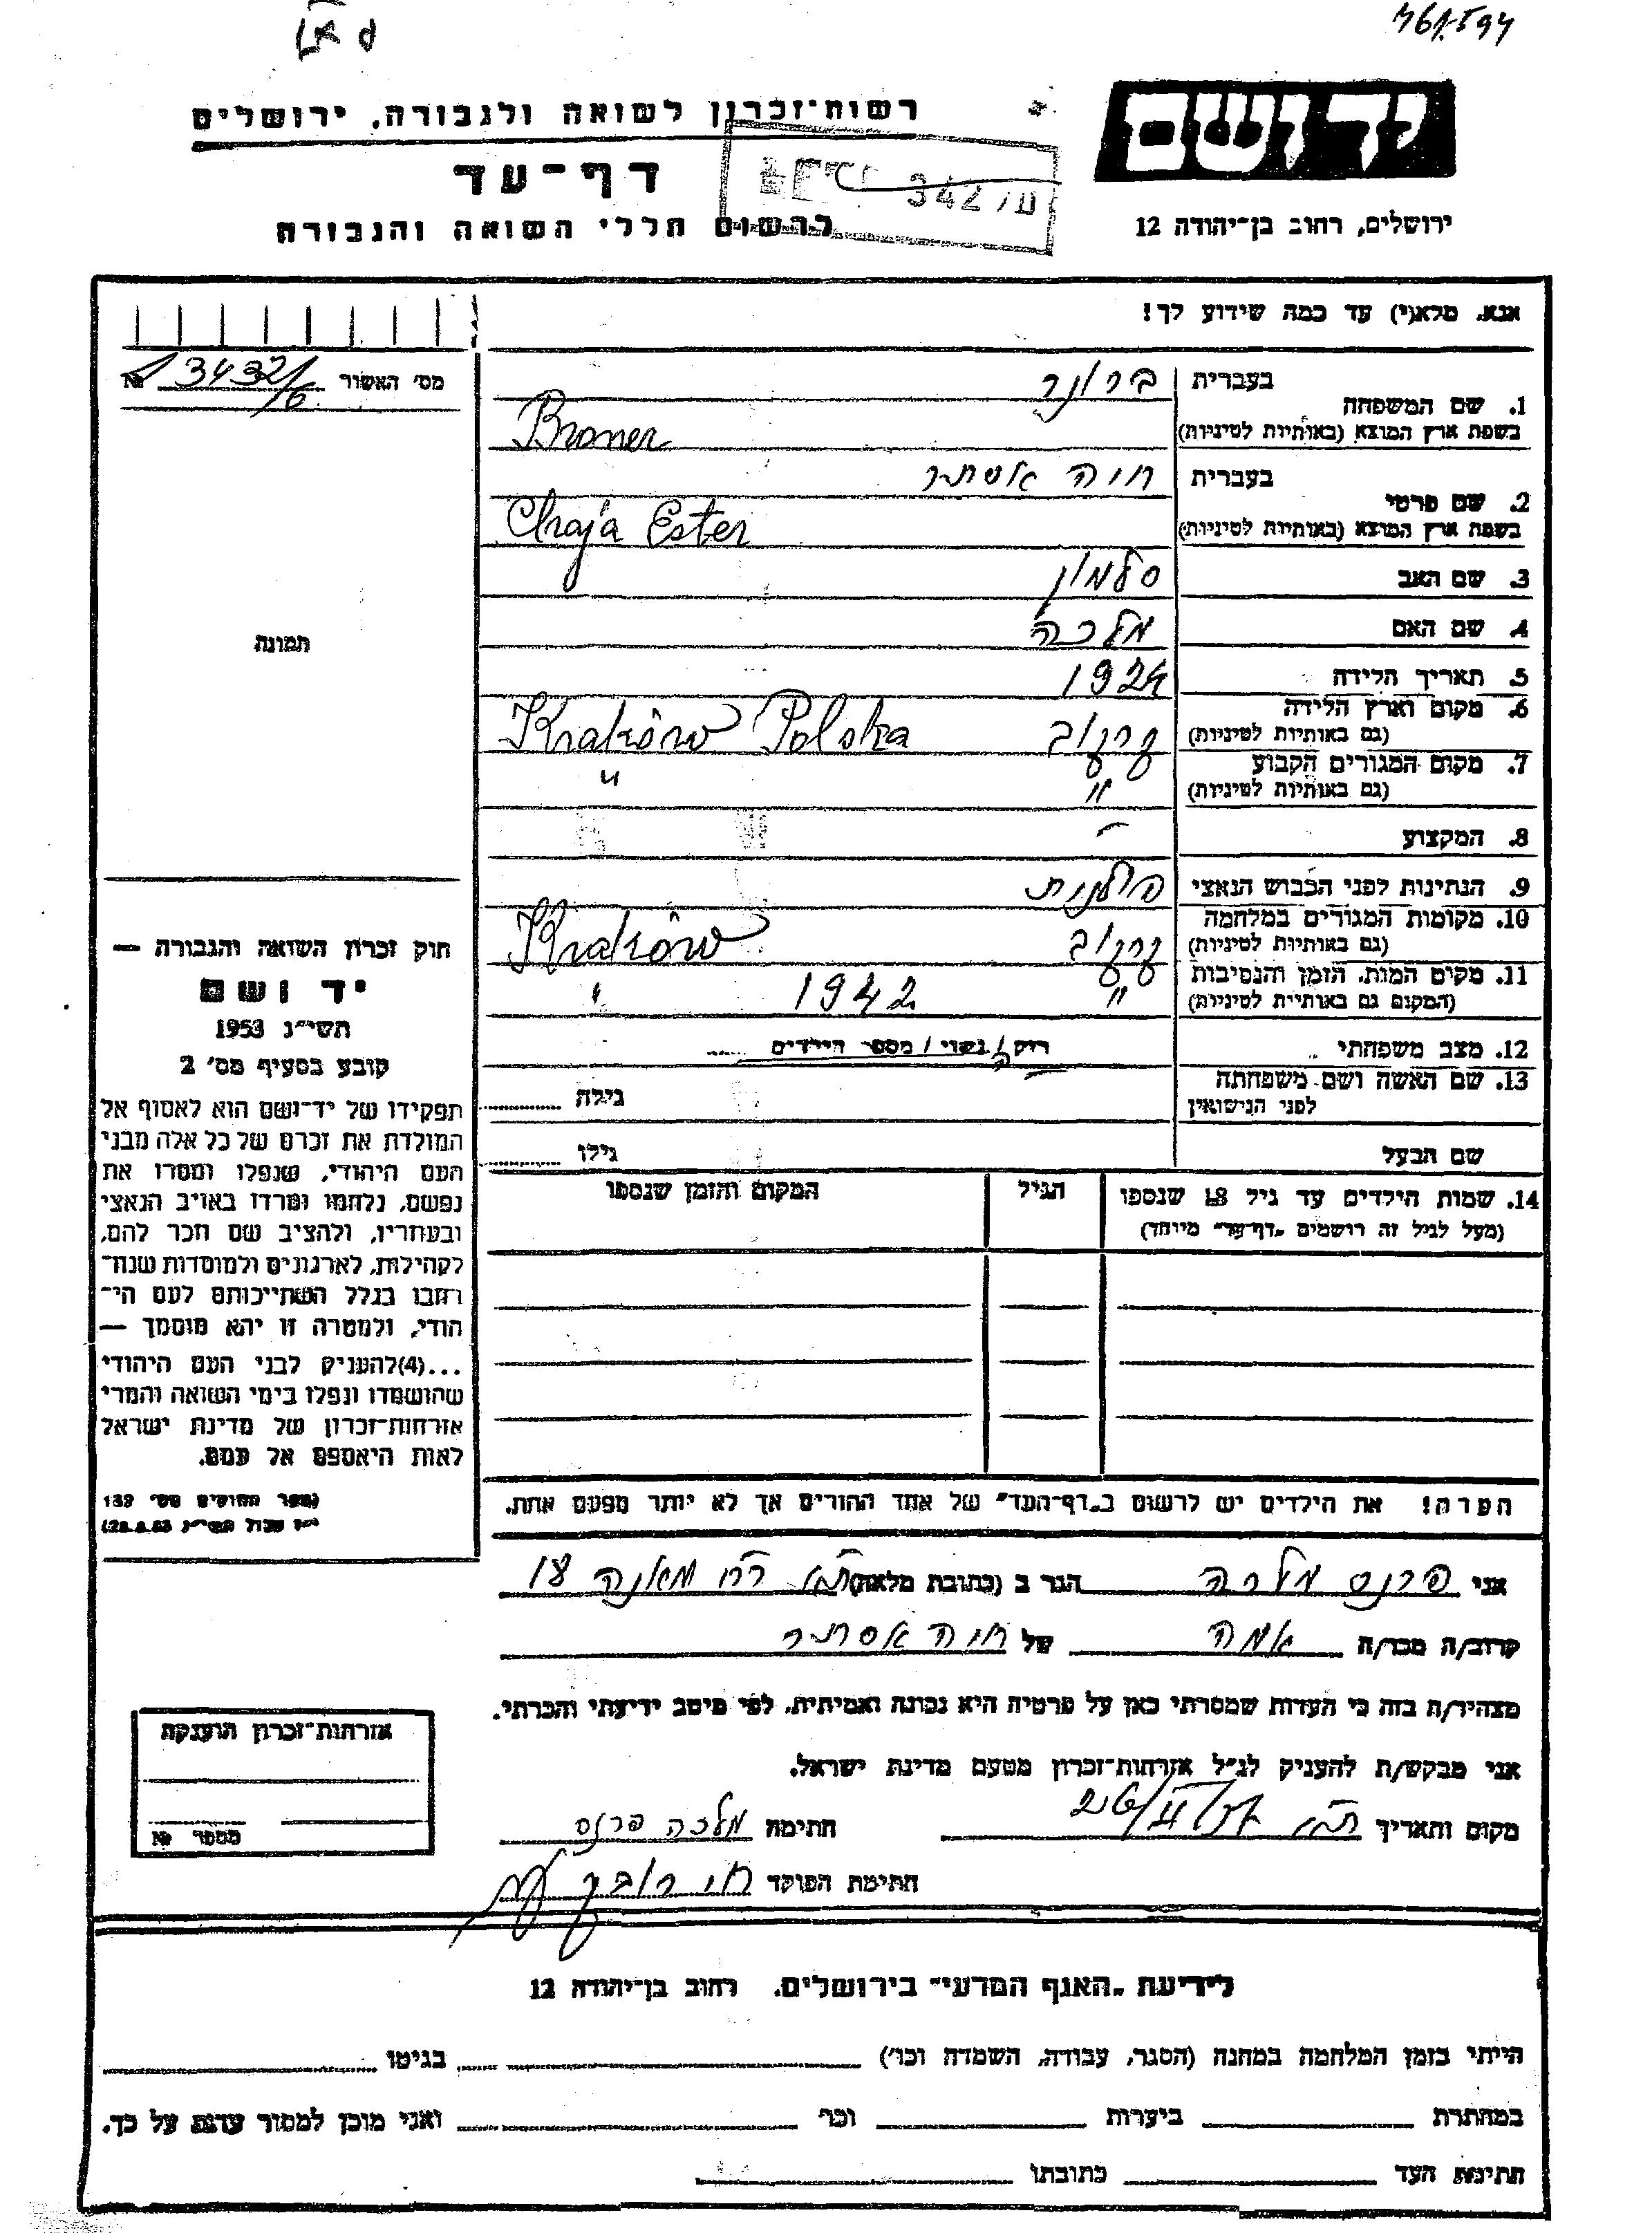 רשות־זכרון לשואה ולגבורה, ירושלים
יד ושם
דף־עד
לרשום חללי השואה והגבורה
ירושלים, רחוב בן־יהודה 12
אנא, מלא(י) עד כמה שידוע לך!
מס׳ האשור № 3432/6
תמונה
חוק זכרון השואה והגבורה —
יד ושם
תשי״ג 1953
קובע בסעיף מס׳ 2
תפקידו של יד־ושם הוא לאסוף אל
המולדת את זכרם של כל אלה מבני
העם היהודי, שנפלו ומסרו את
נפשם, נלחמו ומרדו באויב הנאצי
ובעוזריו, ולהציב שם וזכר להם,
לקהילות, לארגונים ולמוסדות שנח־
רבו בגלל השתייכותם לעם הי־
הודי, ולמטרה זו יהא מוסמך —
...(4) להעניק לבני העם היהודי
שהושמדו ונפלו בימי השואה והמרי
אזרחות־זכרון של מדינת ישראל
לאות היאספם אל עמם.
(ספר החוקים מס׳ 132
1. שם המשפחה בעברית ברונר
בשפת ארץ המוצא (באותיות לטיניות) Broner
2. שם פרטי בעברית חיה אסתר
בשפת ארץ המוצא (באותיות לטיניות) Chaja Ester
3. שם האב סלמון
4. שם האם מלכה
5. תאריך הלידה 1924
6. מקום וארץ הלידה קרקוב Kraków Polska
(גם באותיות לטיניות)
7. מקום המגורים הקבוע " "
(גם באותיות לטיניות)
8. המקצוע –
9. הנתינות לפני הכבוש הנאצי פולנית
10. מקומות המגורים במלחמה קרקוב Kraków
(גם באותיות לטיניות)
11. מקום המות, הזמן והנסיבות " 1942 "
(המקום גם באותיות לטיניות)
12. מצב משפחתי רוק/ה / נשוי / מספר הילדים
13. שם האשה ושם משפחתה גילה
לפני הנישואין
שם הבעל גילו
14. שמות הילדים עד גיל 18 שנספו הגיל המקום והזמן שנספו
(מעל לגיל זה רושמים „דף־עד״ מיוחד)
הערה! את הילדים יש לרשום ב„דף־העד״ של אחד ההורים אך לא יותר מפעם אחת.
אני פרנס מלכה הגר ב (כתובת מלאה) ת״א
קרוב/ה מכר/ה אמה של חיה אסתר
מצהיר/ה בזה כי העדות שמסרתי כאן על פרטיה היא נכונה ואמיתית, לפי מיטב ידיעתי והכרתי.
אני מבקש/ת להעניק לנ״ל אזרחות־זכרון מטעם מדינת ישראל.
מקום ותאריך ת״א חתימה מלכה פרנס
חתימת הפוקד
אזרחות־זכרון הוענקה
מספר №
לידיעת „האגף המדעי״ בירושלים, רחוב בן־יהודה 12
הייתי בזמן המלחמה במחנה (הסגר, עבודה, השמדה וכו׳) בגיטו
במחתרת ביערות וכו׳ ואני מוכן למסור עדות על כך.
חתימת העד כתובתו